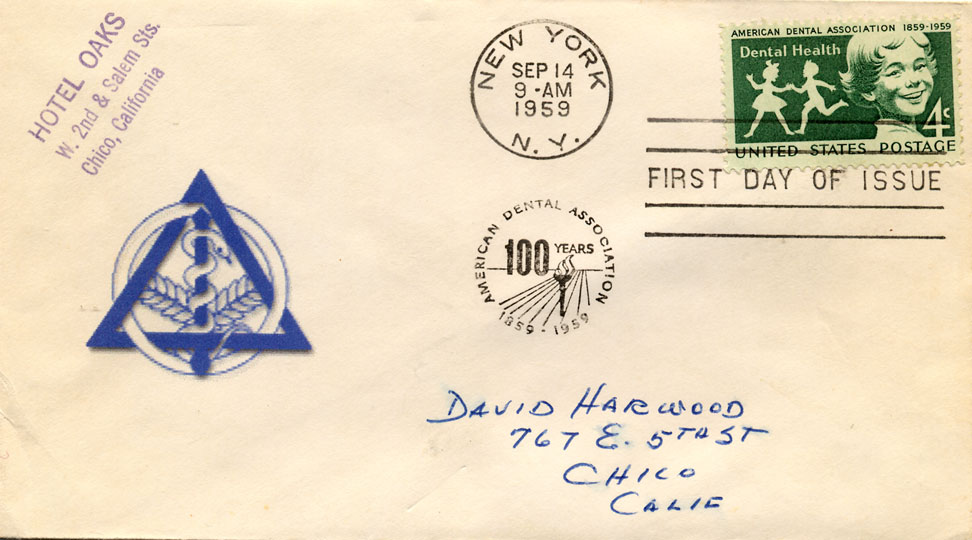 HOTEL OAKS
W. 2nd & Salem Sts.
Chico, California
NEW YORK
SEP 14
9-AM
1959
N. Y.
AMERICAN DENTAL ASSOCIATION 1859-1959
Dental Health
4c
UNITED STATES POSTAGE
FIRST DAY OF ISSUE
AMERICAN DENTAL ASSOCIATION
100 YEARS
1859-1959
DAVID HARWOOD
767 E. 5TH ST
CHICO
CALIF